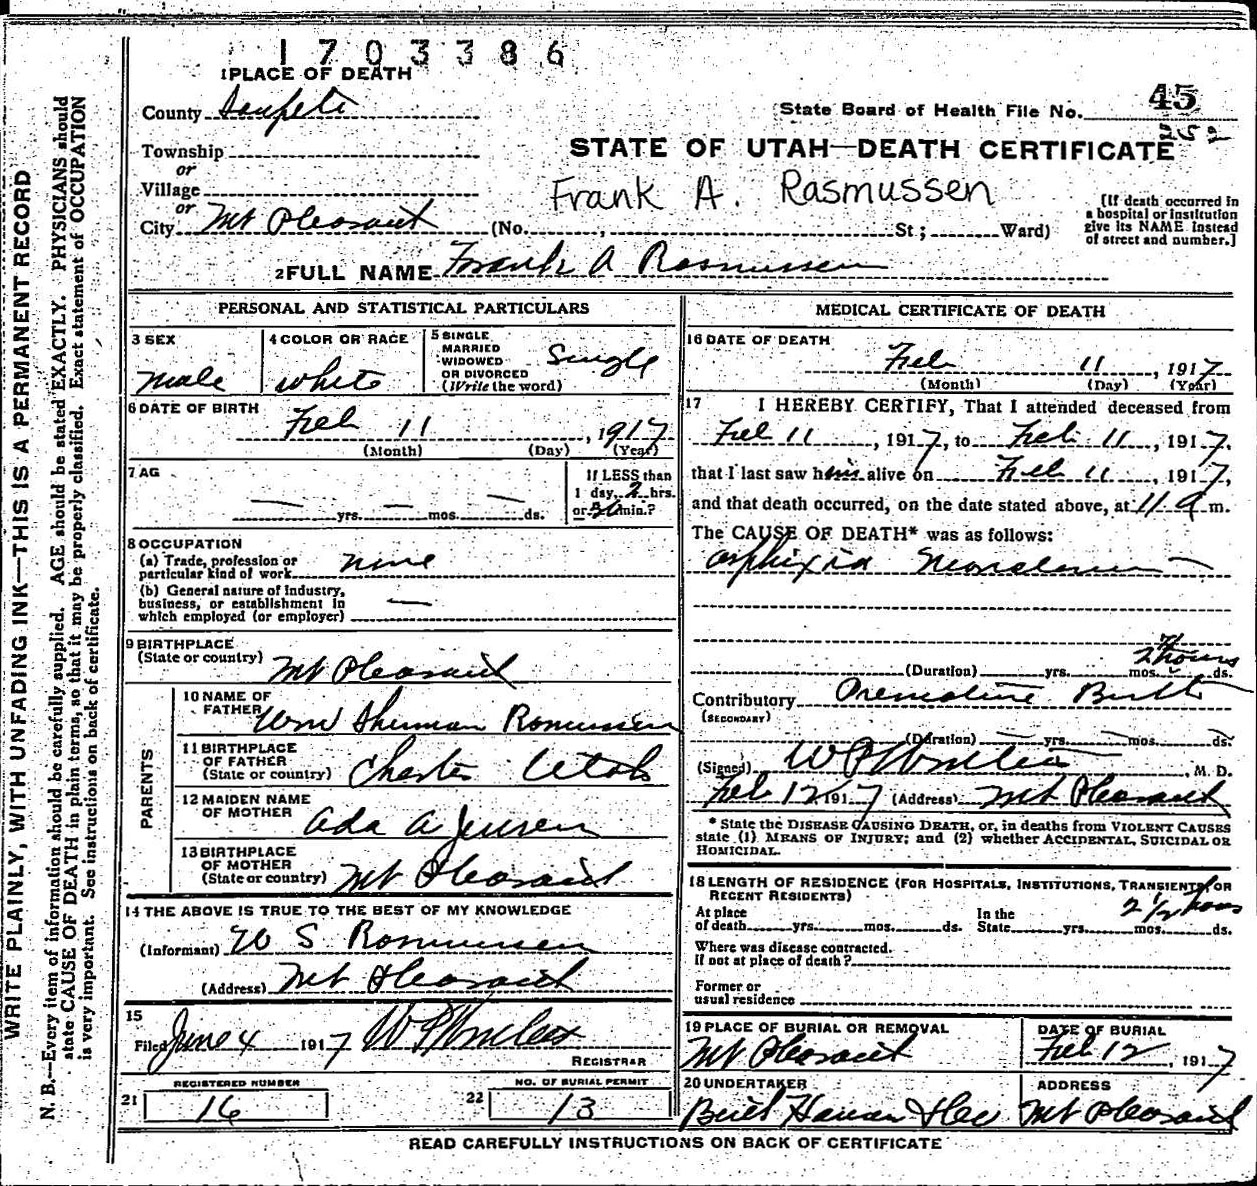 1703386
1 PLACE OF DEATH
County Sanpete
State Board of Health File No. 45
252
Township
or
Village
or
City Mt Pleasant
STATE OF UTAH—DEATH CERTIFICATE
Frank A. Rasmussen
(No. , St; Ward)
[If death occurred in
a hospital or institution
give its NAME instead
of street and number.]
2 FULL NAME Frank A Rasmussen
PERSONAL AND STATISTICAL PARTICULARS
3 SEX
male
4 COLOR OR RACE
white
5 SINGLE
MARRIED
WIDOWED
OR DIVORCED
(Write the word)
Single
6 DATE OF BIRTH
Feb 11, 1917
(Month) (Day) (Year)
7 AG
— yrs. — mos. — ds.
If LESS than
1 day, 2 hrs.
or 30 min.?
8 OCCUPATION
(a) Trade, profession or
particular kind of work none
(b) General nature of Industry,
business, or establishment in
which employed (or employer) —
9 BIRTHPLACE
(State or country) Mt Pleasant
PARENTS
10 NAME OF
FATHER Wm Sherman Rasmussen
11 BIRTHPLACE
OF FATHER
(State or country) Chester Utah
12 MAIDEN NAME
OF MOTHER Ada A Jensen
13 BIRTHPLACE
OF MOTHER
(State or country) Mt Pleasant
14 THE ABOVE IS TRUE TO THE BEST OF MY KNOWLEDGE
(Informant) W S Rasmussen
(Address) Mt Pleasant
15
Filed June 4 1917
REGISTRAR
REGISTERED NUMBER
21 16
NO. OF BURIAL PERMIT
22 13
MEDICAL CERTIFICATE OF DEATH
16 DATE OF DEATH
Feb 11, 1917
(Month) (Day) (Year)
17 I HEREBY CERTIFY, That I attended deceased from
Feb 11, 1917, to Feb. 11, 1917,
that I last saw him alive on Feb 11, 1917,
and that death occurred, on the date stated above, at 11 a m.
The CAUSE OF DEATH* was as follows:
(Duration) yrs. mos. ds.
2 hours
Contributory Premature Birth
(SECONDARY)
(Duration) — yrs. — mos. — ds.
(Signed) , M. D.
Feb 12 1917 (Address) Mt Pleasant
* State the DISEASE CAUSING DEATH, or, in deaths from VIOLENT CAUSES
state (1) MEANS OF INJURY; and (2) whether ACCIDENTAL, SUICIDAL OR
HOMICIDAL.
18 LENGTH OF RESIDENCE (FOR HOSPITALS, INSTITUTIONS, TRANSIENTS, OR
RECENT RESIDENTS)
2 1/2 hours
At place
of death yrs. mos. ds.
In the
State yrs. mos. ds.
Where was disease contracted.
If not at place of death?
Former or
usual residence
19 PLACE OF BURIAL OR REMOVAL
Mt Pleasant
DATE OF BURIAL
Feb 12, 1917
20 UNDERTAKER
ADDRESS
Mt Pleasant
READ CAREFULLY INSTRUCTIONS ON BACK OF CERTIFICATE
WRITE PLAINLY, WITH UNFADING INK—THIS IS A PERMANENT RECORD
N. B.—Every item of information should be carefully supplied. AGE should be stated EXACTLY. PHYSICIANS should
state CAUSE OF DEATH in plain terms, so that it may be properly classified. Exact statement of OCCUPATION
is very important. See instructions on back of certificate.